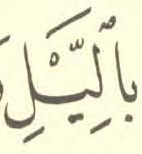 بِٱلَّيْلِ